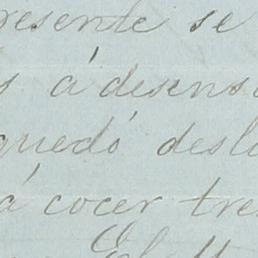 resente se
á desens
quedó desl
á cocer tre